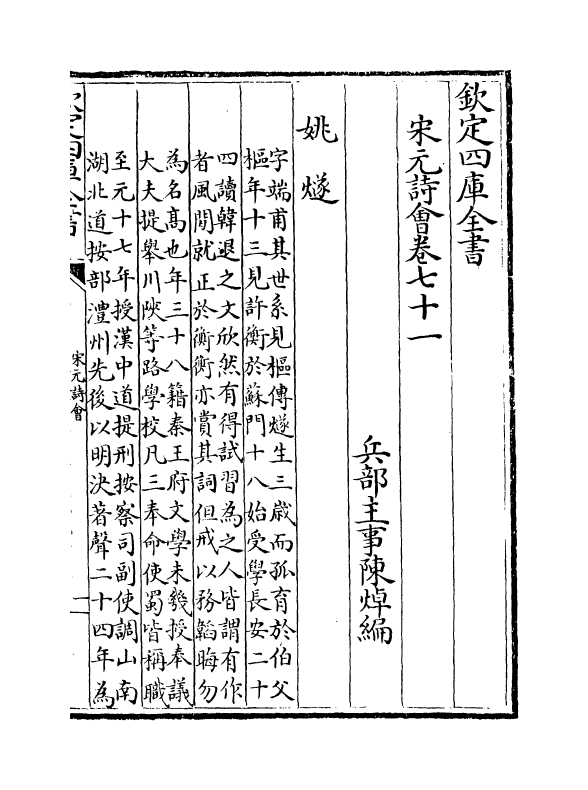 欽定四庫全書
宋元詩會卷七十一
兵部主事陳焯編
姚燧
字端甫其世系見樞傳燧生三歳而孤育於伯父
樞年十三見許衡於蘇門十八始受學長安二十
四讀韓退之文欣然有得試習為之人皆謂有作
者風間就正於衡衡亦賞其詞但戒以務韜晦勿
為名髙也年三十八籍秦王府文學未幾授奉議
大夫提舉川陜等路學校凡三奉命使蜀皆稱職
至元十七年授漢中道提刑按察司副使調山南
湖北道按部澧州先後以明決著聲二十四年為
欽定四庫全書
宋元詩會
一